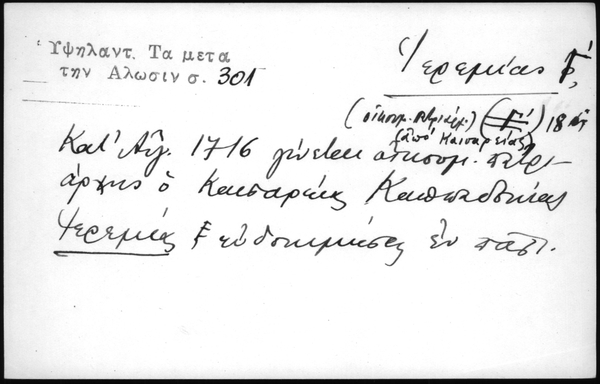 Ὑψηλαντ. Τα μετα
την Αλωσιν σ. 301
Ἱερεμίας Γ',
(οἰκουμ. Πτριάρχ.) (Γ') 18
(ἀπό Καισαρείας)
Κατ' Αὔγ. 1716 γίνεται οἰκουμ. πατρι-
άρχης ὁ Καισαρείας Καππαδοκίας
Ἱερεμίας εὐδοκιμήσας ἐν πᾶσι.